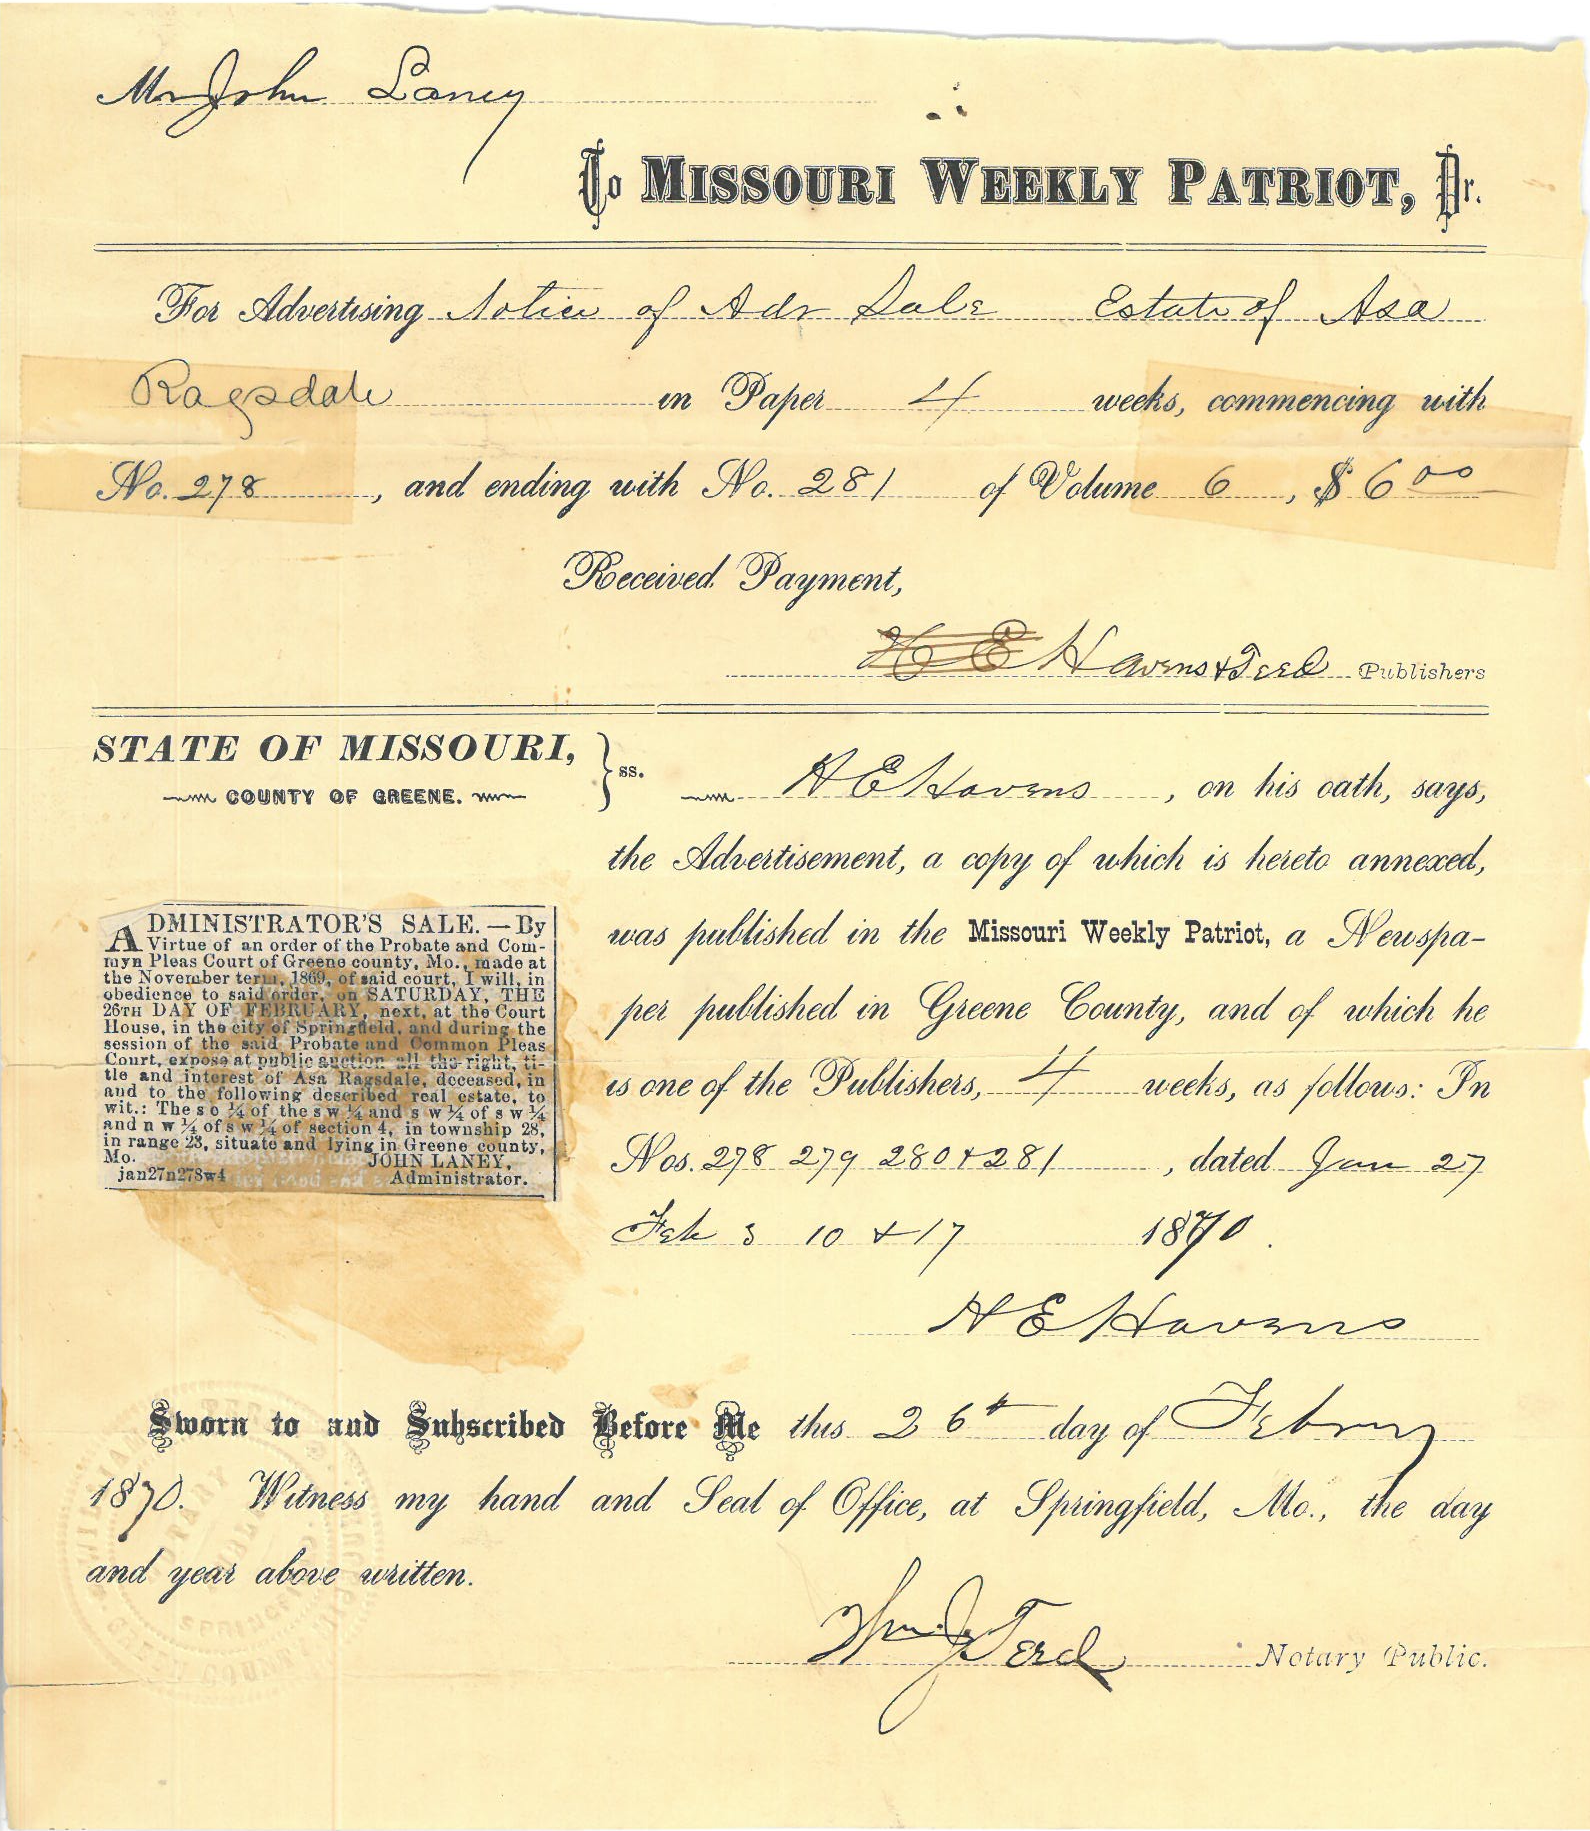 Mr John Laney
To MISSOURI WEEKLY PATRIOT, Dr.
For Advertising Notice of Adr Sale Estate of Asa
Ragsdale in Paper 4 weeks, commencing with
No. 278, and ending with No. 281 of Volume 6, $ 6 00
Received Payment,
H E Havens & Teed Publishers
STATE OF MISSOURI,
COUNTY OF GREENE. } ss.
H E Havens, on his oath, says,
the Advertisement, a copy of which is hereto annexed,
was published in the Missouri Weekly Patriot, a Newspa-
per published in Greene County, and of which he
is one of the Publishers, 4 weeks, as follows: In
Nos. 278 279 280 & 281, dated Jan 27
Feb 3 10 & 17 1870.
H E Havens
ADMINISTRATOR'S SALE.—By
Virtue of an order of the Probate and Com-
myn Pleas Court of Greene county, Mo., made at
the November term, 1869, of said court, I will, in
obedience to said order, on SATURDAY, THE
26TH DAY OF FEBRUARY, next, at the Court
House, in the city of Springfield, and during the
session of the said Probate and Common Pleas
Court, expose at public auction all the right, ti-
tle and interest of Asa Ragsdale, deceased, in
and to the following described real estate, to
wit.: The s e ¼ of the s w ¼ and s w ¼ of s w ¼
and n w ¼ of s w ¼ of section 4, in township 28,
in range 23, situate and lying in Greene county,
Mo. JOHN LANEY,
jan27n278w4 Administrator.
Sworn to and Subscribed Before Me this 26th day of Februy
1870. Witness my hand and Seal of Office, at Springfield, Mo., the day
and year above written.
Wm. J. Teed Notary Public.